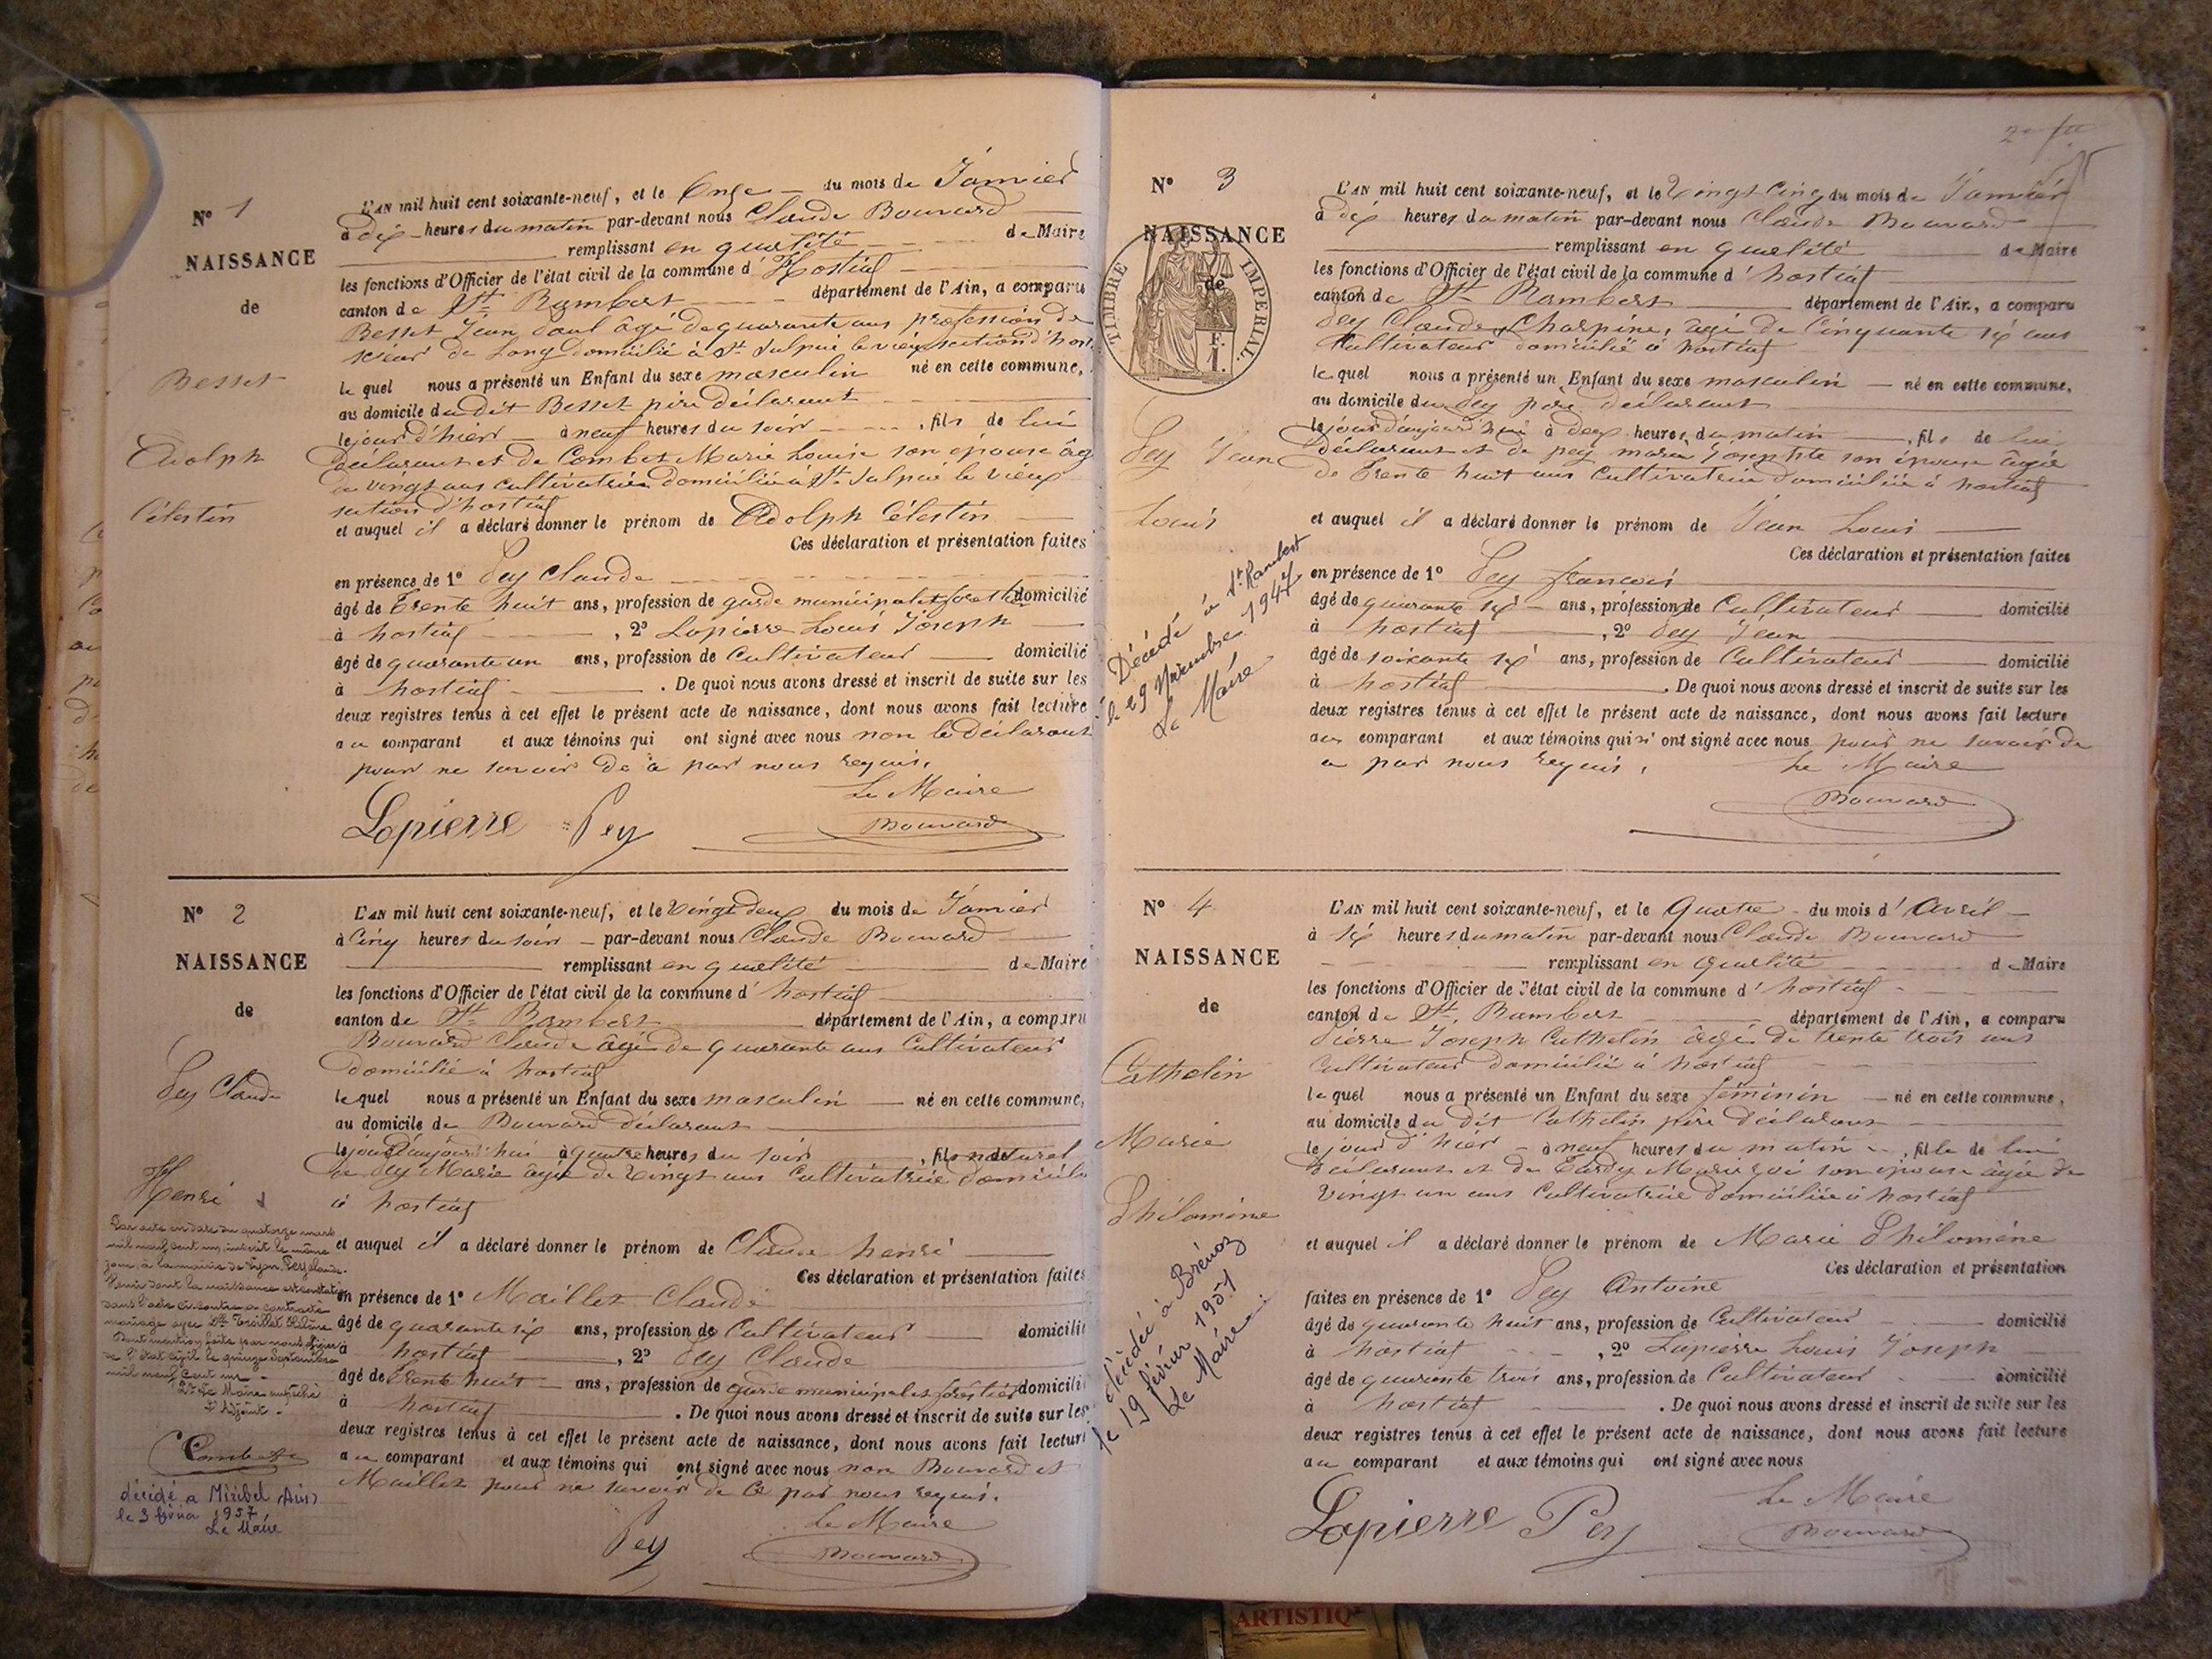 N° 1
NAISSANCE
de
Besset
Adolph
Célestin
L'AN mil huit cent soixante-neuf, et le Onze du mois de Janvier
à dix heures du matin par-devant nous Claude Bouvard
remplissant en qualité de Maire
les fonctions d'Officier de l'état civil de la commune d'hostiaz
canton de St Rambert département de l'Ain, a comparu
Besset Jean Paul âgé de quarante ans profession de
scieur de Long domicilié à St Sulpice le vieux section d'host
le quel nous a présenté un Enfant du sexe masculin né en cette commune,
au domicile du dit Besset père déclarant
le jour d'hier à neuf heures du soir, fils de lui
déclarant et de Combet Marie Louise son épouse âg
de vingt ans cultivatrice domiciliée à St Sulpice le vieux
section d'hostiaz
et auquel il a déclaré donner le prénom de Adolph Célestin
Ces déclaration et présentation faites
en présence de 1° Pey Claude
âgé de trente huit ans, profession de garde municipal et forestier domicilié
à hostiaz, 2° Lapierre Louis Joseph
âgé de quarante un ans, profession de Cultivateur domicilié
à hostiaz. De quoi nous avons dressé et inscrit de suite sur les
deux registres tenus à cet effet le présent acte de naissance, dont nous avons fait lecture
au comparant et aux témoins qui ont signé avec nous non le déclarant
pour ne savoir de ce par nous requis.
Le Maire
Lapierre Pey Bouvard
N° 2
NAISSANCE
de
Pey Claude
Henri
L'AN mil huit cent soixante-neuf, et le Vingt deux du mois de Janvier
à Cinq heures du soir par-devant nous Claude Bouvard
remplissant en qualité de Maire
les fonctions d'Officier de l'état civil de la commune d'hostiaz
canton de St Rambert département de l'Ain, a comparu
Bouvard Claude âgé de quarante ans Cultivateur
domicilié à hostiaz
le quel nous a présenté un Enfant du sexe masculin né en cette commune,
au domicile de Bouvard déclarant
le jour d'aujourd'hui à quatre heures du soir, fils naturel
de Pey Marie âgée de Vingt ans Cultivatrice domicilié
à hostiaz
et auquel il a déclaré donner le prénom de Claude henri
Ces déclaration et présentation faites
en présence de 1° Maillet Claude
âgé de quarante six ans, profession de Cultivateur domicilié
à hostiaz, 2° Pey Claude
âgé de trente huit ans, profession de garde municipal et forestier domicilié
à hostiaz. De quoi nous avons dressé et inscrit de suite sur les
deux registres tenus à cet effet le présent acte de naissance, dont nous avons fait lecture
au comparant et aux témoins qui ont signé avec nous non Bouvard et
Maillet pour ne savoir de ce par nous requis.
Le Maire
Pey Bouvard
Par acte en date du quatorze mars
mil neuf cent un, inscrit le même
jour à la mairie de Lyon, Pey Claude
Henri dont la naissance est constatée
dans l'acte ci-contre a contracté
mariage avec Dlle
Dont mention faite par nous officier
de l'état civil le quinze Septembre
mil neuf cent un
Le Maire empêché
L'Adjoint
décédé a Miribel (Ain)
le 3 février 1957
Le Maire
N° 3
NAISSANCE
de
TIMBRE IMPERIAL
Pey Jean
Louis
L'AN mil huit cent soixante-neuf, et le Vingt Cinq du mois de Janvier
à dix heures du matin par-devant nous Claude Bouvard
remplissant en qualité de Maire
les fonctions d'Officier de l'état civil de la commune d'hostiaz
canton de St Rambert département de l'Ain, a comparu
Pey Claude Charpine, âgé de Cinquante six ans
Cultivateur domicilié à hostiaz
le quel nous a présenté un Enfant du sexe masculin né en cette commune,
au domicile du Pey père déclarant
le jour d'aujourd'hui à deux heures du matin, fils de lui
déclarant et de pey marie Josephte son épouse âgée
de trente huit ans Cultivatrice domiciliée à hostiaz
et auquel il a déclaré donner le prénom de Jean Louis
Ces déclaration et présentation faites
en présence de 1° Pey francois
âgé de quarante six ans, profession de Cultivateur domicilié
à hostiaz, 2° Pey Jean
âgé de soixante six ans, profession de Cultivateur domicilié
à hostiaz. De quoi nous avons dressé et inscrit de suite sur les
deux registres tenus à cet effet le présent acte de naissance, dont nous avons fait lecture
au comparant et aux témoins qui n'ont signé avec nous pour ne savoir de
ce par nous requis.
Le Maire
Bouvard
Décédé à St Rambert
le 29 Novembre 1947
Le Maire
N° 4
NAISSANCE
de
Cathelin
Marie
Philomène
L'AN mil huit cent soixante-neuf, et le Quatre du mois d'Avril
à six heures du matin par-devant nous Claude Bouvard
remplissant en qualité de Maire
les fonctions d'Officier de l'état civil de la commune d'hostiaz
canton de St Rambert département de l'Ain, a comparu
Pierre Joseph Cathelin âgé de trente trois ans
Cultivateur domicilié à hostiaz
le quel nous a présenté un Enfant du sexe féminin né en cette commune,
au domicile du dit Cathelin père déclarant
le jour d'hier à neuf heures du matin, fille de lui
déclarant et de Tardy Marie son épouse âgée de
Vingt un ans Cultivatrice domiciliée à hostiaz
et auquel il a déclaré donner le prénom de Marie Philomène
Ces déclaration et présentation
faites en présence de 1° Pey Antoine
âgé de quarante huit ans, profession de Cultivateur domicilié
à hostiaz, 2° Lapierre Louis Joseph
âgé de quarante trois ans, profession de Cultivateur domicilié
à hostiaz. De quoi nous avons dressé et inscrit de suite sur les
deux registres tenus à cet effet le présent acte de naissance, dont nous avons fait lecture
au comparant et aux témoins qui ont signé avec nous
Le Maire
Lapierre Pey Bouvard
décédée à Brénod
le 19 février 1951
Le Maire
ARTISTIQ